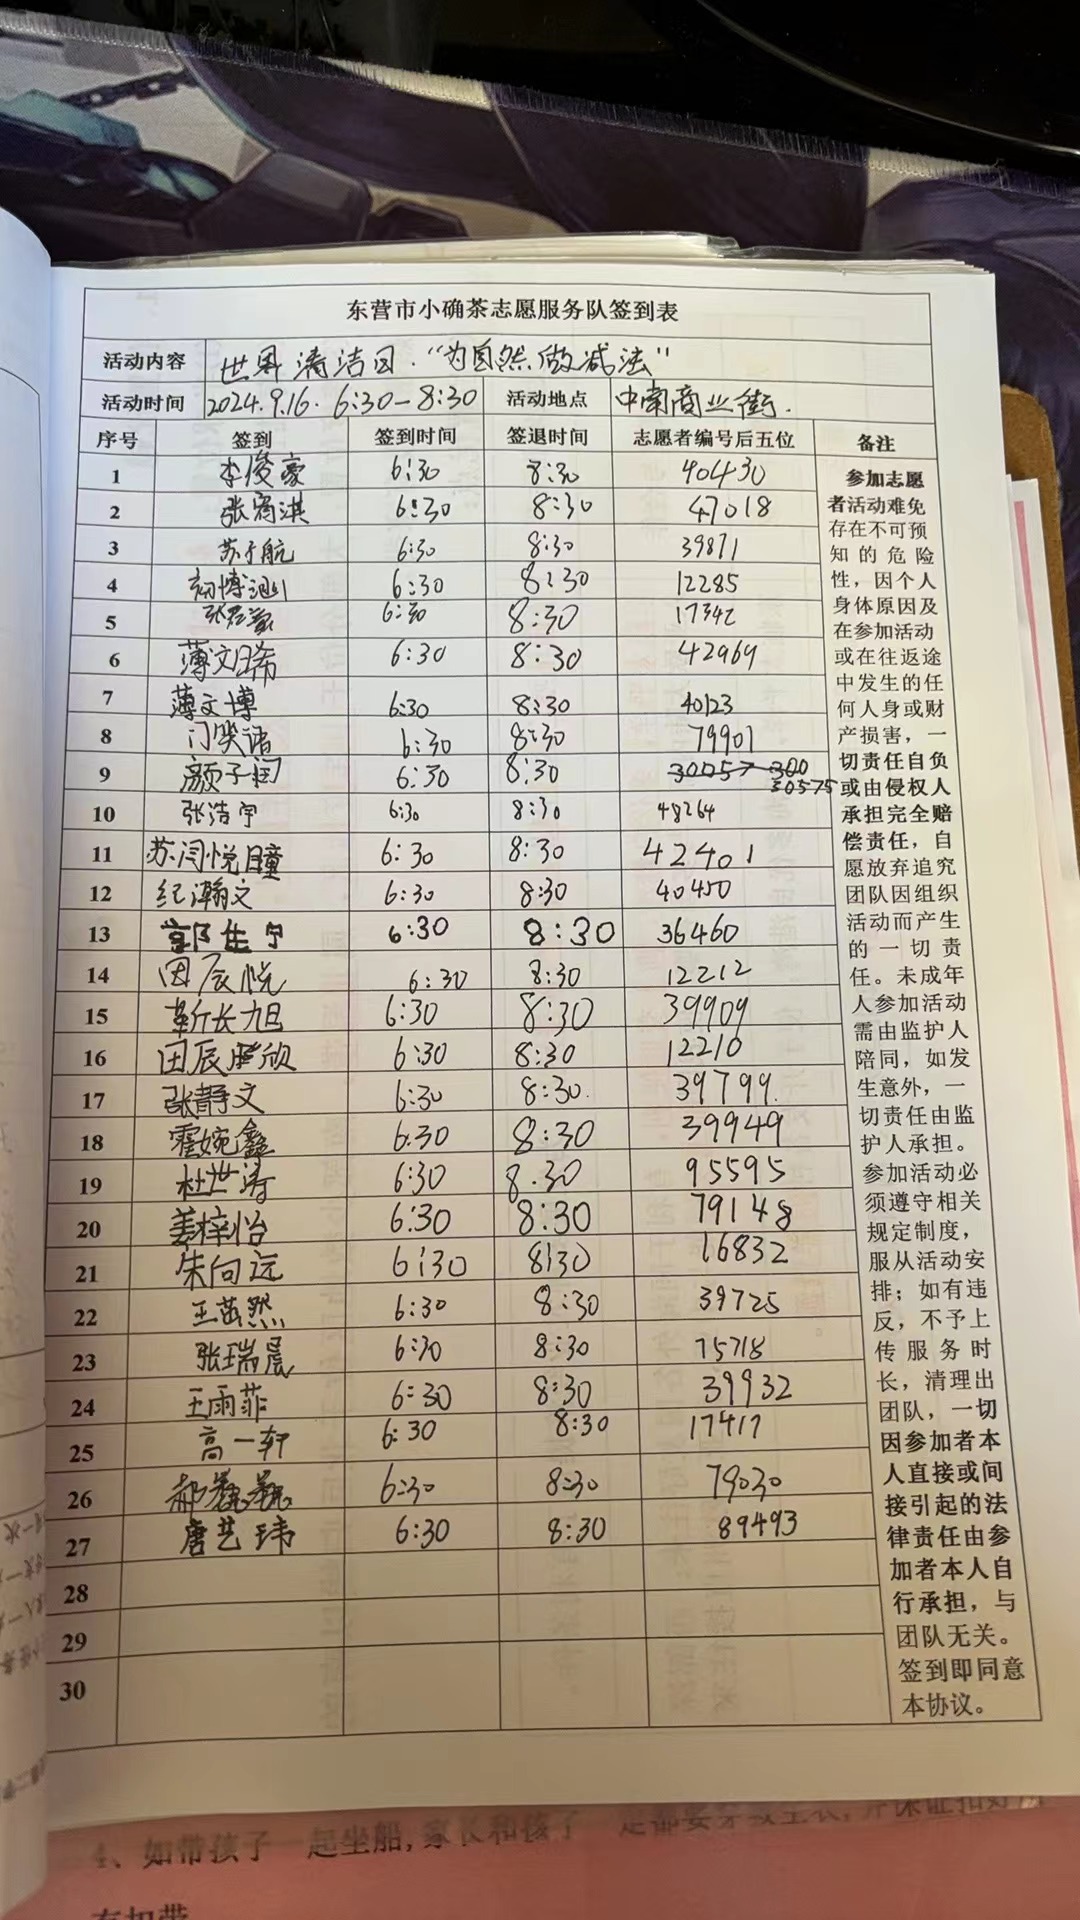 东营市小确茶志愿服务队签到表
活动内容 世界清洁日·“为自然做减法”
活动时间 2024.9.16. 6:30-8:30 活动地点 中南商业街.
序号 签到 签到时间 签退时间 志愿者编号后五位 备注
1 李俊豪 6:30 8:30 40430
2 张 淇 6:30 8:30 47018
3 苏于航 6:30 8:30 39871
4 初博 6:30 8:30 12285
5 张 6:30 8:30 17342
6 薄文晞 6:30 8:30 42969
7 薄文博 6:30 8:30 40123
8 门笑诸 6:30 8:30 79901
9 颜子润 6:30 8:30 30057 300
30575
10 张浩宇 6:30 8:30 48264
11 苏闫悦瞳 6:30 8:30 42401
12 纪瀚文 6:30 8:30 40450
13 郭佳宁 6:30 8:30 36460
14 田辰悦 6:30 8:30 12212
15 靳长旭 6:30 8:30 39909
16 田辰欣 6:30 8:30 12210
17 张静文 6:30 8:30. 39799.
18 霍婉鑫 6:30 8:30 39949
19 杜世涛 6:30 8.30 95595
20 姜梓怡 6:30 8:30 79148
21 朱向远 6:30 8:30 16832
22 王茁然 6:30 8:30 39725
23 张瑞晨 6:30 8:30 15718
24 王雨菲 6:30 8:30 39932
25 高一轩 6:30 8:30 17417
26 郝巍巍 6:30 8:30 79030
27 唐艺玮 6:30 8:30 89493
28
29
30
参加志愿
者活动难免
存在不可预
知的危险
性，因个人
身体原因及
在参加活动
或在往返途
中发生的任
何人身或财
产损害，一
切责任自负
或由侵权人
承担完全赔
偿责任，自
愿放弃追究
团队因组织
活动而产生
的一切责
任。未成年
人参加活动
需由监护人
陪同，如发
生意外，一
切责任由监
护人承担。
参加活动必
须遵守相关
规定制度，
服从活动安
排；如有违
反，不予上
传服务时
长，清理出
团队，一切
因参加者本
人直接或间
接引起的法
律责任由参
加者本人自
行承担，与
团队无关。
签到即同意
本协议。
4、如带孩子一起坐船,家长和孩子一定都要穿救生衣,并保证扣好所
有扣带